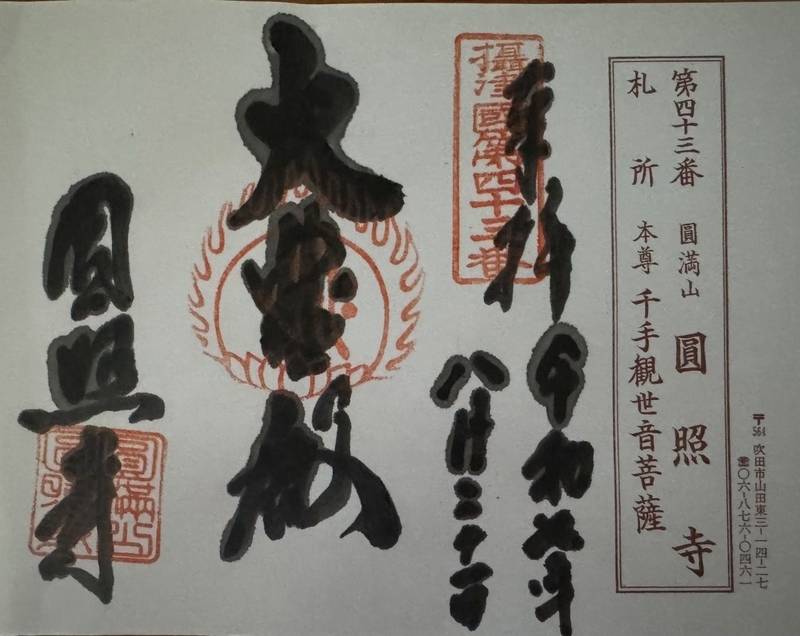 〒564 吹田市山田東三-一四-二七
☎〇六-八七六-〇四六一
第四十三番 圓満山 圓照寺
札所 本尊 千手観世音菩薩
攝津國第四十三番
奉拝 令和七年
八月二十一日
大悲殿
圓照寺